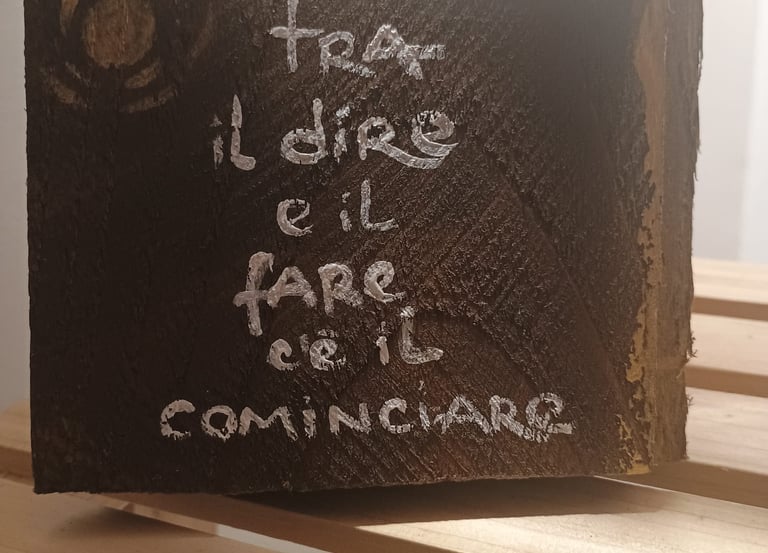 tRA
il diRe
e il
fARe
c'è il
COMiNCiARe